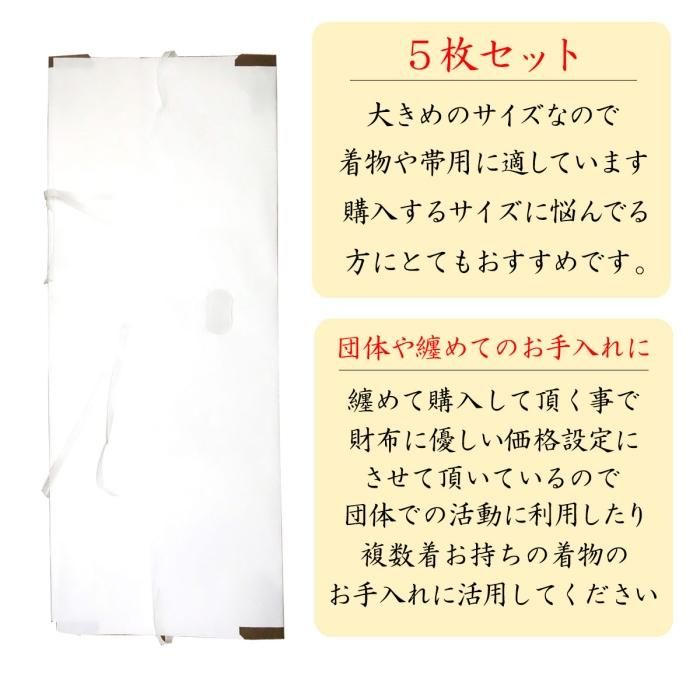 ５枚セット
大きめのサイズなので
着物や帯用に適しています
購入するサイズに悩んでる
方にとてもおすすめです。
団体や纏めてのお手入れに
纏めて購入して頂く事で
財布に優しい価格設定に
させて頂いているので
団体での活動に利用したり
複数着お持ちの着物の
お手入れに活用してください